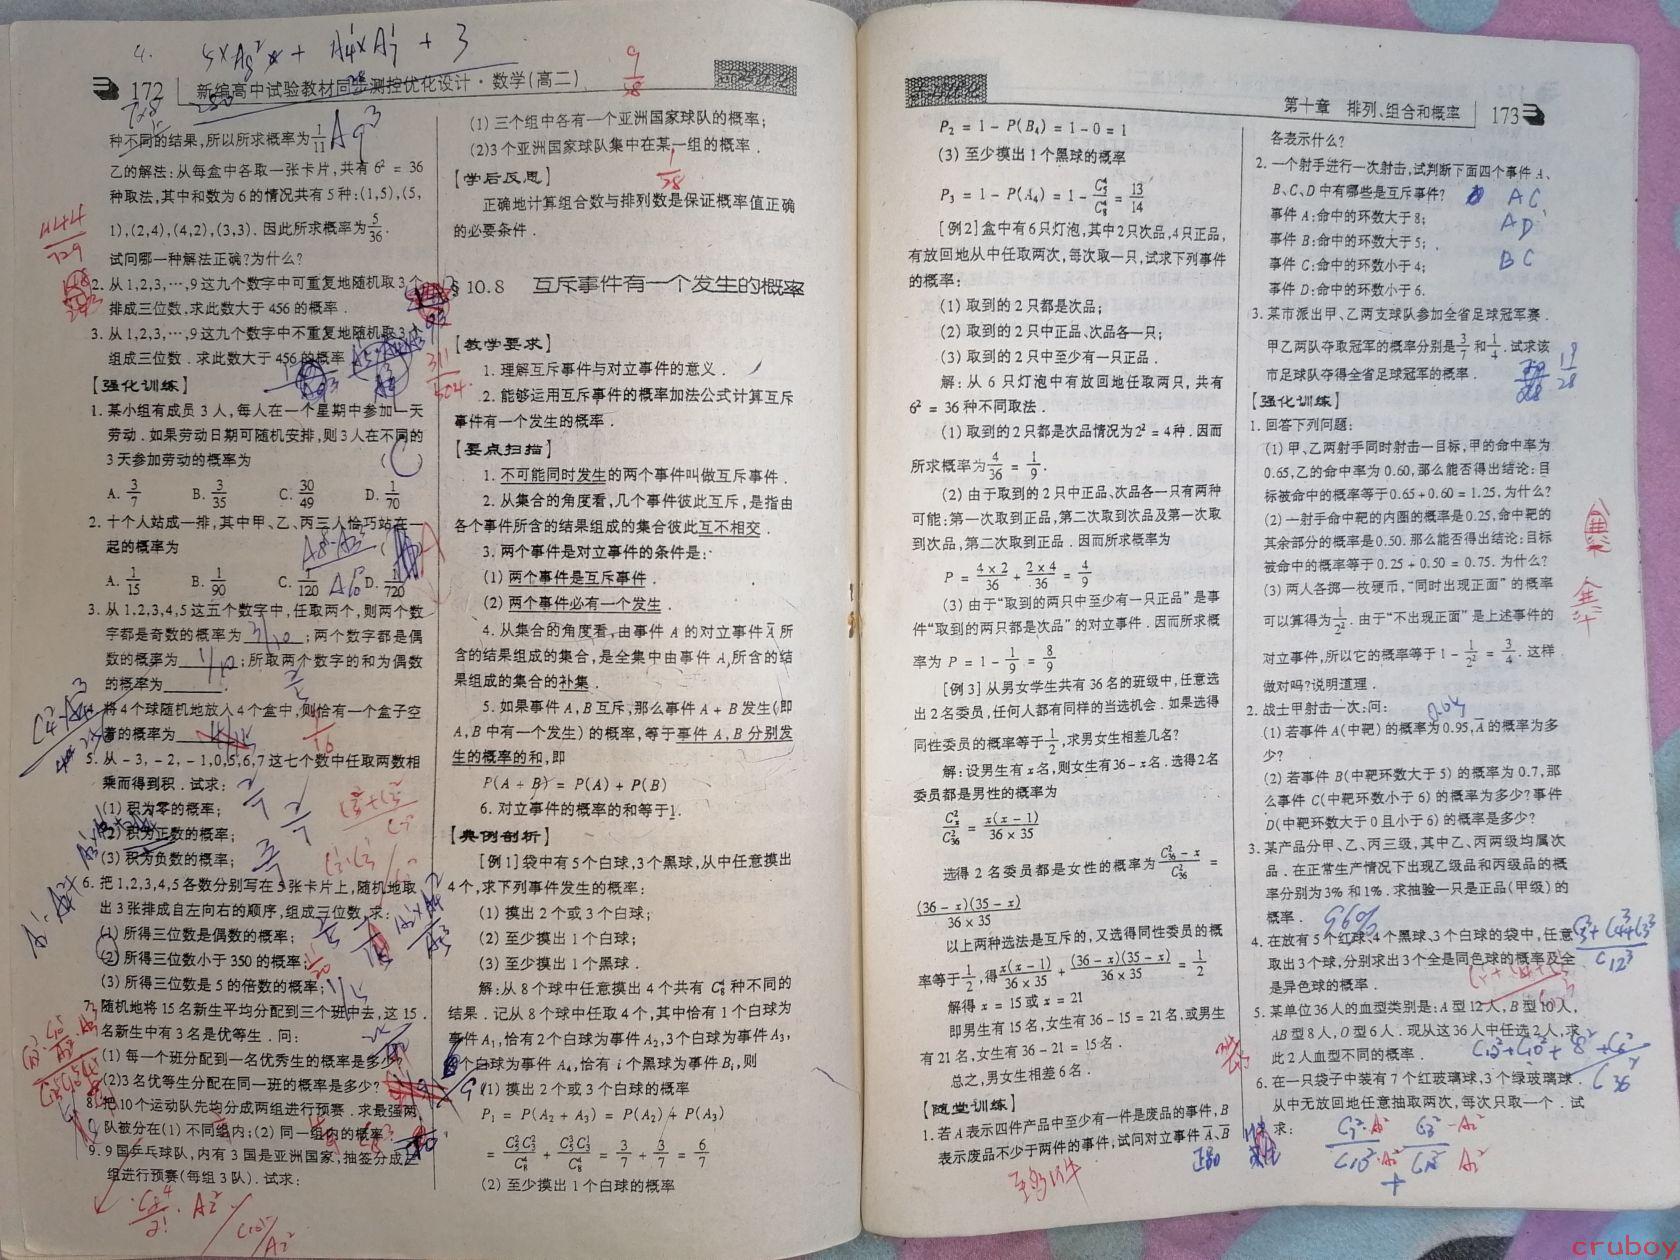 172 新编高中试验教材同步测控优化设计·数学(高二)
种不同的结果,所以所求概率为1/11
乙的解法:从每盒中各取一张卡片,共有 6² = 36
种取法,其中和数为 6 的情况共有 5 种:(1,5),(5,
1),(2,4),(4,2),(3,3). 因此所求概率为5/36.
试问哪一种解法正确?为什么?
2. 从 1,2,3,…,9 这九个数字中可重复地随机取 3 个
排成三位数,求此数大于 456 的概率.
3. 从 1,2,3,…,9 这九个数字中不重复地随机取 3 个
组成三位数. 求此数大于 456 的概率
【强化训练】
1. 某小组有成员 3 人,每人在一个星期中参加一天
劳动. 如果劳动日期可随机安排,则 3 人在不同的
3 天参加劳动的概率为 ( C )
A. 3/7 B. 3/35 C. 30/49 D. 1/70
2. 十个人站成一排,其中甲、乙、丙三人恰巧站在一
起的概率为
A. 1/15 B. 1/90 C. 1/120 D. 1/720
3. 从 1,2,3,4,5 这五个数字中,任取两个,则两个数
字都是奇数的概率为 3/10 ;两个数字都是偶
数的概率为 1/10 ;所取两个数字的和为偶数
的概率为
将 4 个球随机地放入 4 个盒中,则恰有一个盒子空
着的概率为
5. 从 -3, -2, -1,0,5,6,7 这七个数中任取两数相
乘而得到积. 试求:
(1) 积为零的概率;
(2) 积为正数的概率;
(3) 积为负数的概率;
6. 把 1,2,3,4,5 各数分别写在 5 张卡片上,随机地取
出 3 张排成自左向右的顺序,组成三位数,求:
(1) 所得三位数是偶数的概率;
(2) 所得三位数小于 350 的概率;
(3) 所得三位数是 5 的倍数的概率;
7. 随机地将 15 名新生平均分配到三个班中去,这 15
名新生中有 3 名是优等生. 问:
(1) 每一个班分配到一名优秀生的概率是多少?
(2)3 名优等生分配在同一班的概率是多少?
8. 把 10 个运动队先均分成两组进行预赛. 求最强两
队被分在(1) 不同组内;(2) 同一组内的概率
9. 9 国乒乓球队,内有 3 国是亚洲国家,抽签分成三
组进行预赛(每组 3 队). 试求:
(1) 三个组中各有一个亚洲国家球队的概率;
9/28
(2)3 个亚洲国家球队集中在某一组的概率.
1/28
【学后反思】
正确地计算组合数与排列数是保证概率值正确
的必要条件.
§10.8 互斥事件有一个发生的概率
【教学要求】
1. 理解互斥事件与对立事件的意义.
2. 能够运用互斥事件的概率加法公式计算互斥
事件有一个发生的概率.
【要点扫描】
1. 不可能同时发生的两个事件叫做互斥事件.
2. 从集合的角度看,几个事件彼此互斥,是指由
各个事件所含的结果组成的集合彼此互不相交.
3. 两个事件是对立事件的条件是:
(1) 两个事件是互斥事件.
(2) 两个事件必有一个发生.
4. 从集合的角度看,由事件 A 的对立事件 A̅ 所
含的结果组成的集合,是全集中由事件 A 所含的结
果组成的集合的补集.
5. 如果事件 A,B 互斥,那么事件 A + B 发生(即
A,B 中有一个发生) 的概率,等于事件 A,B 分别发
生的概率的和,即
P(A + B) = P(A) + P(B)
6. 对立事件的概率的和等于1.
【典例剖析】
[例 1] 袋中有 5 个白球,3 个黑球,从中任意摸出
4 个,求下列事件发生的概率:
(1) 摸出 2 个或 3 个白球;
(2) 至少摸出 1 个白球;
(3) 至少摸出 1 个黑球.
解:从 8 个球中任意摸出 4 个共有 C₈⁴ 种不同的
结果. 记从 8 个球中任取 4 个,其中恰有 1 个白球为
事件 A₁,恰有 2 个白球为事件 A₂,3 个白球为事件 A₃,
4个白球为事件 A₄,恰有 i 个黑球为事件 Bᵢ,则
(1) 摸出 2 个或 3 个白球的概率
P₁ = P(A₂ + A₃) = P(A₂) + P(A₃)
= C₅²C₃²/C₈⁴ + C₅³C₃¹/C₈⁴ = 3/7 + 3/7 = 6/7
(2) 至少摸出 1 个白球的概率
第十章 排列、组合和概率 173
P₂ = 1 - P(B₄) = 1 - 0 = 1
(3) 至少摸出 1 个黑球的概率
P₃ = 1 - P(A₄) = 1 - C₅⁴/C₈⁴ = 13/14
[例 2] 盒中有 6 只灯泡,其中 2 只次品,4 只正品,
有放回地从中任取两次,每次取一只,试求下列事件
的概率:
(1) 取到的 2 只都是次品;
(2) 取到的 2 只中正品、次品各一只;
(3) 取到的 2 只中至少有一只正品.
解: 从 6 只灯泡中有放回地任取两只, 共有
6² = 36 种不同取法.
(1) 取到的 2 只都是次品情况为 2² = 4 种. 因而
所求概率为 4/36 = 1/9.
(2) 由于取到的 2 只中正品、次品各一只有两种
可能:第一次取到正品,第二次取到次品及第一次取
到次品,第二次取到正品. 因而所求概率为
P = 4×2/36 + 2×4/36 = 4/9
(3) 由于“取到的两只中至少有一只正品”是事
件“取到的两只都是次品”的对立事件. 因而所求概
率为 P = 1 - 1/9 = 8/9
[例 3] 从男女学生共有 36 名的班级中,任意选
出 2 名委员,任何人都有同样的当选机会. 如果选得
同性委员的概率等于1/2,求男女生相差几名?
解:设男生有 x 名,则女生有 36 - x 名. 选得 2 名
委员都是男性的概率为
Cₓ²/C₃₆² = x(x - 1)/36 × 35
选得 2 名委员都是女性的概率为 C²₃₆₋ₓ/C₃₆² =
(36 - x)(35 - x)/36 × 35
以上两种选法是互斥的,又选得同性委员的概
率等于1/2,得 x(x - 1)/36 × 35 + (36 - x)(35 - x)/36 × 35 = 1/2
解得 x = 15 或 x = 21
即男生有 15 名,女生有 36 - 15 = 21 名,或男生
有 21 名,女生有 36 - 21 = 15 名.
总之,男女生相差 6 名.
【随堂训练】
1. 若 A 表示四件产品中至少有一件是废品的事件,B
表示废品不少于两件的事件,试问对立事件 A̅、B̅
各表示什么?
2. 一个射手进行一次射击,试判断下面四个事件 A、
B、C、D 中有哪些是互斥事件? AC
事件 A:命中的环数大于 8; AD
事件 B:命中的环数大于 5;
事件 C:命中的环数小于 4; BC
事件 D:命中的环数小于 6.
3. 某市派出甲、乙两支球队参加全省足球冠军赛.
甲乙两队夺取冠军的概率分别是3/7 和1/4. 试求该
市足球队夺得全省足球冠军的概率. 19/28
【强化训练】
1. 回答下列问题:
(1) 甲、乙两射手同时射击一目标,甲的命中率为
0.65,乙的命中率为 0.60,那么能否得出结论:目
标被命中的概率等于 0.65 + 0.60 = 1.25,为什么?
(2) 一射手命中靶的内圈的概率是 0.25,命中靶的
其余部分的概率是 0.50. 那么能否得出结论:目标
被命中的概率等于 0.25 + 0.50 = 0.75. 为什么?
(3) 两人各掷一枚硬币,“同时出现正面”的概率
可以算得为1/2². 由于“不出现正面”是上述事件的
对立事件,所以它的概率等于 1 - 1/2² = 3/4. 这样
做对吗?说明道理.
2. 战士甲射击一次:问:
(1) 若事件 A(中靶) 的概率为 0.95,A̅ 的概率为多
少?
(2) 若事件 B(中靶环数大于 5) 的概率为 0.7,那
么事件 C(中靶环数小于 6) 的概率为多少?事件
D(中靶环数大于 0 且小于 6) 的概率是多少?
3. 某产品分甲、乙、丙三级,其中乙、丙两级均属次
品. 在正常生产情况下出现乙级品和丙级品的概
率分别为 3% 和 1%. 求抽验一只是正品(甲级) 的
概率. 96%
4. 在放有 5 个红球、4 个黑球、3 个白球的袋中,任意
取出 3 个球,分别求出 3 个全是同色球的概率及全
是异色球的概率.
5. 某单位 36 人的血型类别是:A 型 12 人,B 型 10 人,
AB 型 8 人,O 型 6 人. 现从这 36 人中任选 2 人,求
此 2 人血型不同的概率.
6. 在一只袋子中装有 7 个红玻璃球,3 个绿玻璃球.
从中无放回地任意抽取两次,每次只取一个. 试
求:
cruboy